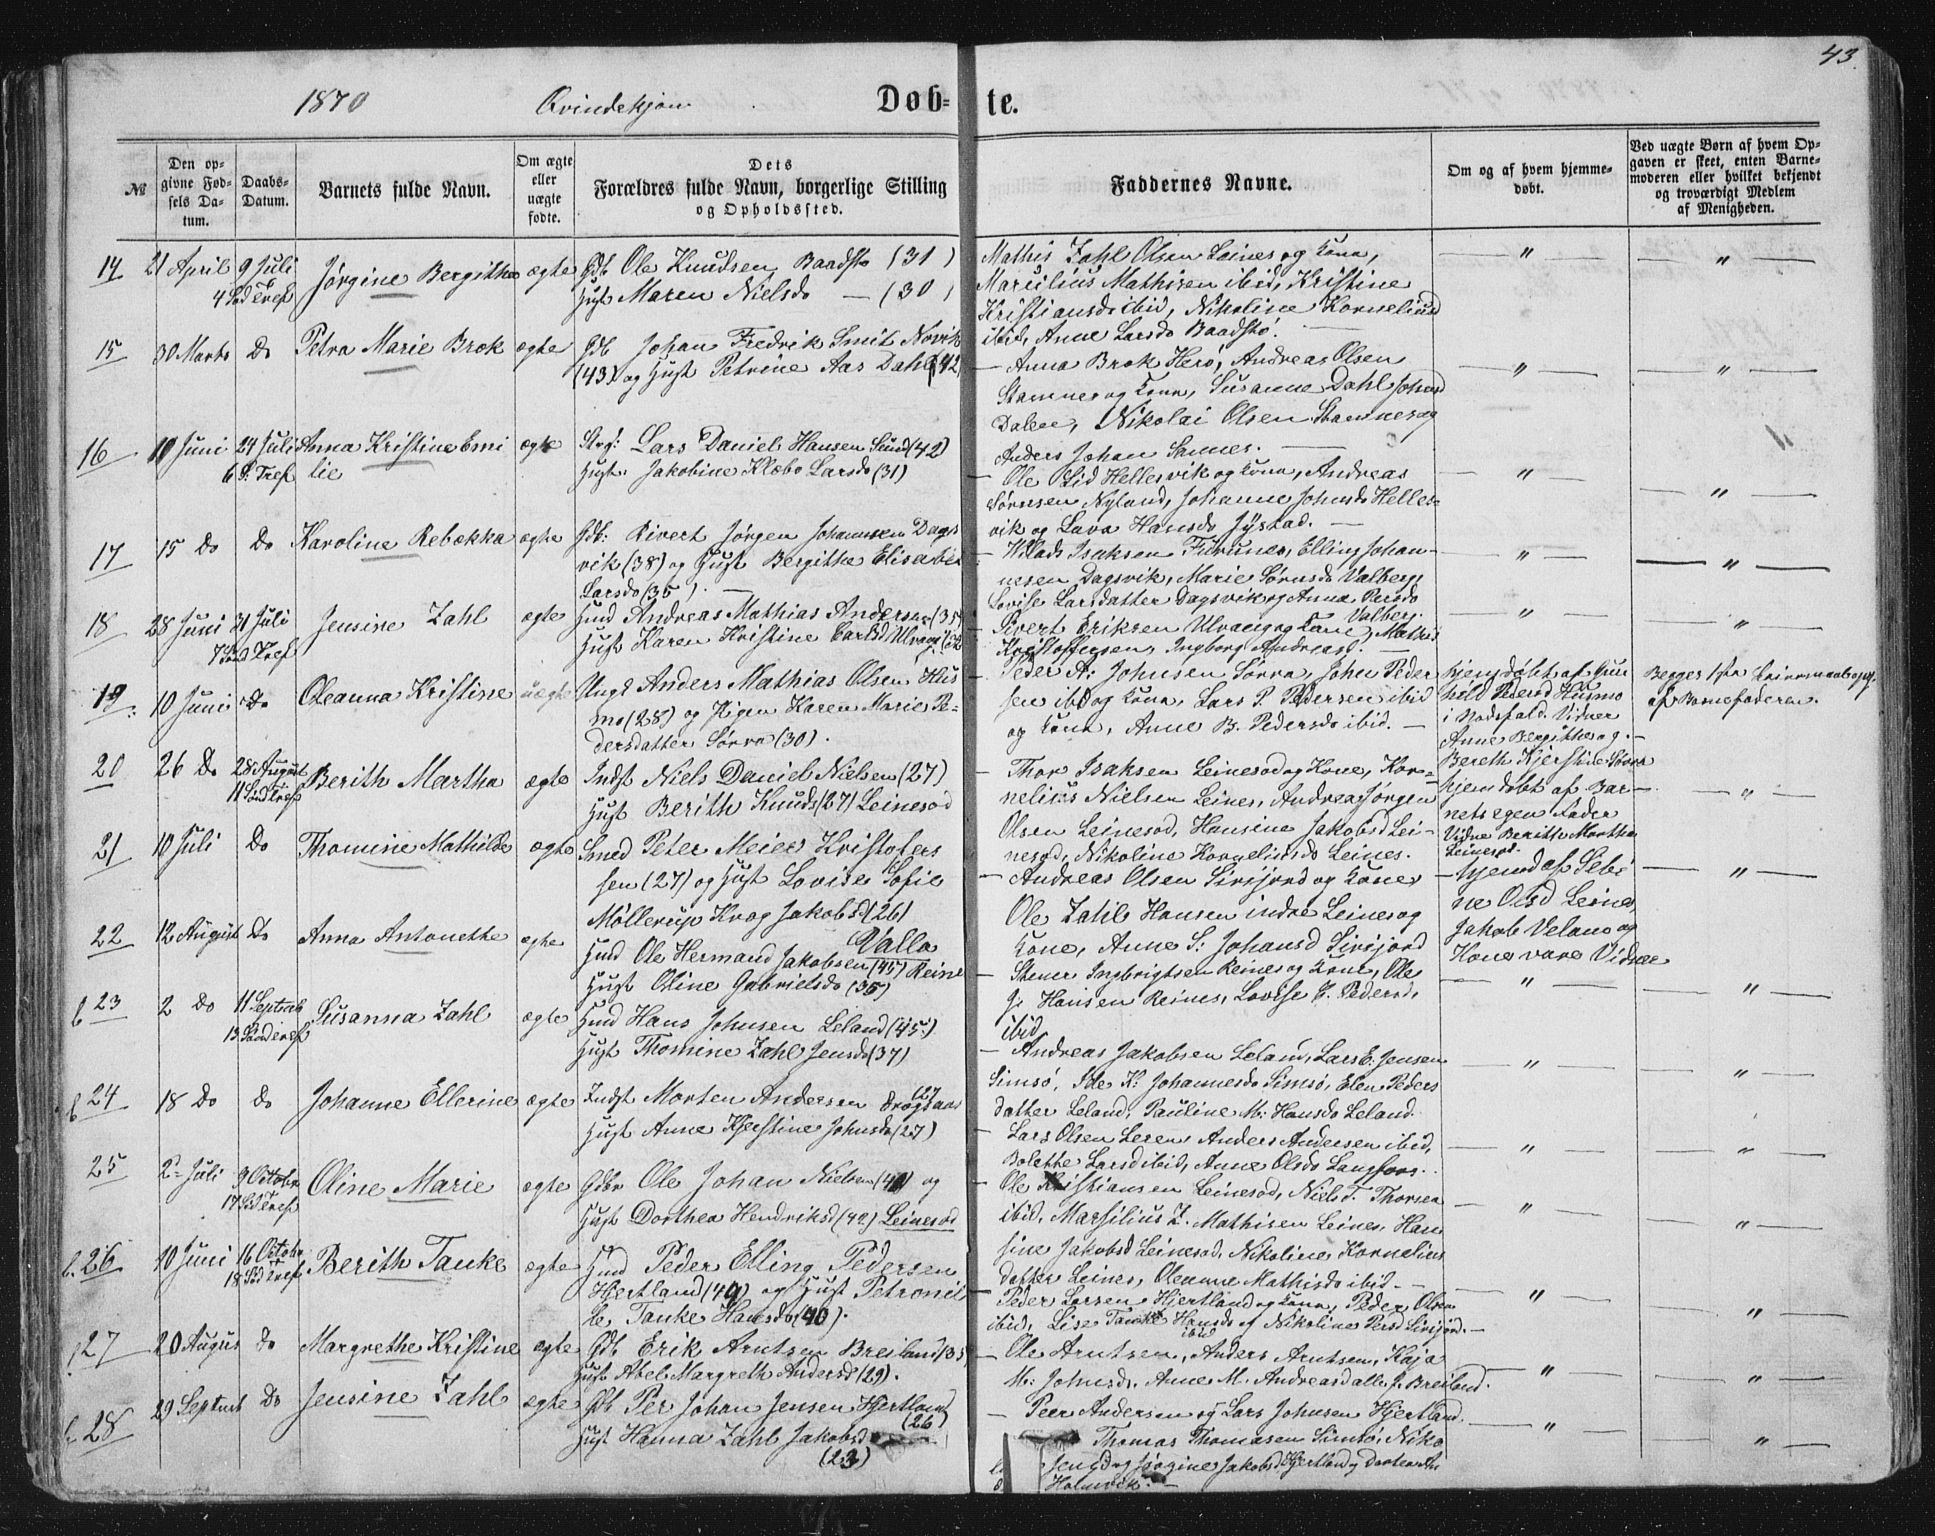 43.
1870 Qvindekjøn Døb- te.
№
Den opgivne Fødsels Datum.
Daabs-Datum.
Barnets fulde Navn.
Om ægte eller uægte fødte.
Dets Forældres fulde Navn, borgerlige Stilling og Opholdssted.
Faddernes Navne.
Om og af hvem hjemmedøbt.
Ved uægte Børn af hvem Opgaven er skeet, enten Barnemoderen eller hvilket bekjendt og troværdigt Medlem af Menigheden.
14 21 April 9 Juli Jørgine Bergithe ægte Gdb Ole Knudsen Baadstø (31)
4 Sød Tref Hust Maren Nielsd. — (30)
Mathis Zahl Olsen Leines og Kone,
Marsilius Mathisen ibid, Kristine
Kristiansd ibid, Nikoline Kornelius
ibid, Anne Larsd. Baadstø. —
15 30 Marts Do Petra Marie Brok ægte Gdb Johan Fredrik Smit Novik
(43) og Hust Petrine Aas Dahl (42)
— Anna Brok Herø, Andreas Olsen
Stamnes og Kone, Susanne Dahl Johnsd
Dalen, Nikolai Olsen Stamnes og
Anders Johan Sannes. —
16 10 Juni 24 Juli Anna Kristine Emi ægte Lars Daniel Hansen Sund (42)
6 S. Tref lie Hust: Jakobine Klæbo Larsd (31)
— Ole Lid Hellesvik og Kone, Andreas
Sørensen Nyland, Johanne Johnsd. Helles-
vik og Lava Hansd. Jystad. —
17 15 Do Do Karoline Rebekka ægte Gdb: Sivert Jørgen Johannesen Dags
vik (38) og Hust Bergithe Elisabet
Larsd (35). —
— Isaksen Furunes, Elling Johan-
nesen Dagsvik, Marie Sørensd. Valberg,
Lovise Larsdatter Dagsvik og Anna Persd
Valberg.
18 28 Juni 31 Juli Jensine Zahl ægte Hmd Andreas Mathias Andersen (35)
7 Sønd Tref Hust Karen Kristine Carlsd Ulvang
— Sivert Eriksen Ulvang og Kone, Mathis
Kristoffersen, Ingborg Andreasd. —
19. 10 Juni Do Oleanna Kristine uægte Ungk Anders Mathias Olsen Hus
mo (28) og Pigen Karen Marie Pe-
dersdatter Sørra (30).
— Peder A: Johnsen Sørra, John Peder
sen ibid og Kone, Lars P. Pedersen ibid
og Kone, Anne B. Pedersd. ibid. —
hjemdøbt af Gun
hild Pedersd Husmo
i Nødsfald. Vidner
Anne Bergithe og. —
Bereth Kjerstine Sørra
Begges 1ste Leiermaal opg.
af Barnefaderen.
20 26 Do 28 August Berith Martha ægte Indst Niels Daniel Nielsen (27)
11 Sønd Tref Hust Berith Knudsd (27) Leinesod
— Thor Isaksen Leinesod og Kone, Kor-
nelius Nielsen Leines, Andreas Jørgen
Olsen Leinesod, Hansine Jakobsd Lei-
nesod, Nikoline Korneliusd Leines.
hjemdøbt af Bar-
nets egen Fader
Vidne Berith Martha
Leinesod.
21 10 Juli Do Thomine Mathilde ægte Smed Peter Meier Kristofers
sen (27) og Hust Lovise Sofie
Møllerup Krog Jakobsd (26)
Valla
— Andreas Olsen Sirijord og Kone
Ole Zahl Hansen indre Leines og
Kone, Anne S: Johansd Sirijord
— hjemd af Seli
ne Olsd Leines,
Jakob Velano og
Kone vare Vidner
22 12 August Do Anna Antonette ægte Hmd Ole Hermand Jakobsen (45) Reine
Hust Oline Gabrielsd. (35)
— Stener Ingbrigtsen Reines og Kone, Ole
Hansen Reines, Lovise Pedersd.
ibid
23 2 Do 11 Septemb Susanna Zahl ægte Hmd Hans Johnsen Leland (45)
13 Sønd Tref Hust Thomine Zahl Jensd (37)
— Andreas Jakobsen Leland, Lars E. Jensen
Simsø, Ide K: Johannesd. Simsø, Elen Peders
datter Leland, Pauline M: Hansd. Leland.
24 18 Do Do Johanne Ellerine ægte Indst Morten Andersen (27)
Hust Anne Kjerstine Johnsd (27)
— Lars Olsen Leren, Anders Andersen ibid,
Bolette Larsd ibid, Anne Olsd. Langfors.
25 2 Juli 9 Octobr Oline Marie ægte Gdbr Ole Johan Nielsen (41) og
17 Sød Tref Hust Dorthea Hendriksd (42) Leinesod
— Ole Kristiansen Leinesod, Niels T. Thorsen
ibid, Marsilius Z. Mathisen Leines, Han
sine Jakobsd Leinesod, Nikoline Kornelius
datter Leines, Oleanne Mathisd. ibid —
26 10 Juni 16 Octobr Berith Tanke ægte Hmd Peder Elling Pedersen
18 Sød Tref Hjertland (49) og Hust Petronil
le Tanke Hansd. (40).
— Peder Larsen Hjertland og Kone, Peder Olsen
ibid, Lise Tanke Hansd. ibid Nikoline Persd Sirijord. —
27 20 Augus Do Margrethe Kristine ægte Gdb Erik Arntsen Breiland (35
Hust Abel Margreth Andersd (29).
— Ole Arntsen, Anders Arntsen, Kaja
M: Johnsd, Anne M. Andreasd alle f. Breiland.
28 29 Septemb Do Jensine Zahl ægte Gdb Per Johan Jensen Hjertland
(26)
Hust Hanna Zahl Jakobsd
(23)
— Peer Andersen og Lars Johnsen Hjertland.
Thomas Thomasen Simsø, Niko
Jørgine Jakobsd Hjertland
Holmvik. —